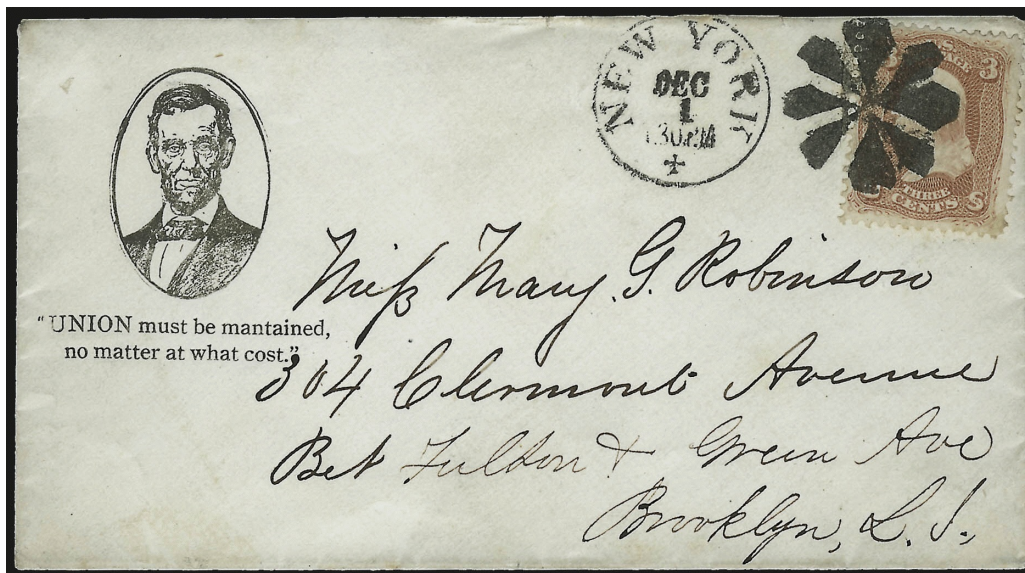 NEW YORK
DEC
1
30 PM
3
THREE
CENTS
"UNION must be mantained,
no matter at what cost."
Miss Mary. G. Robinson
304 Clermont Avenue
Bet Fulton & Green Ave
Brooklyn, L. I.,